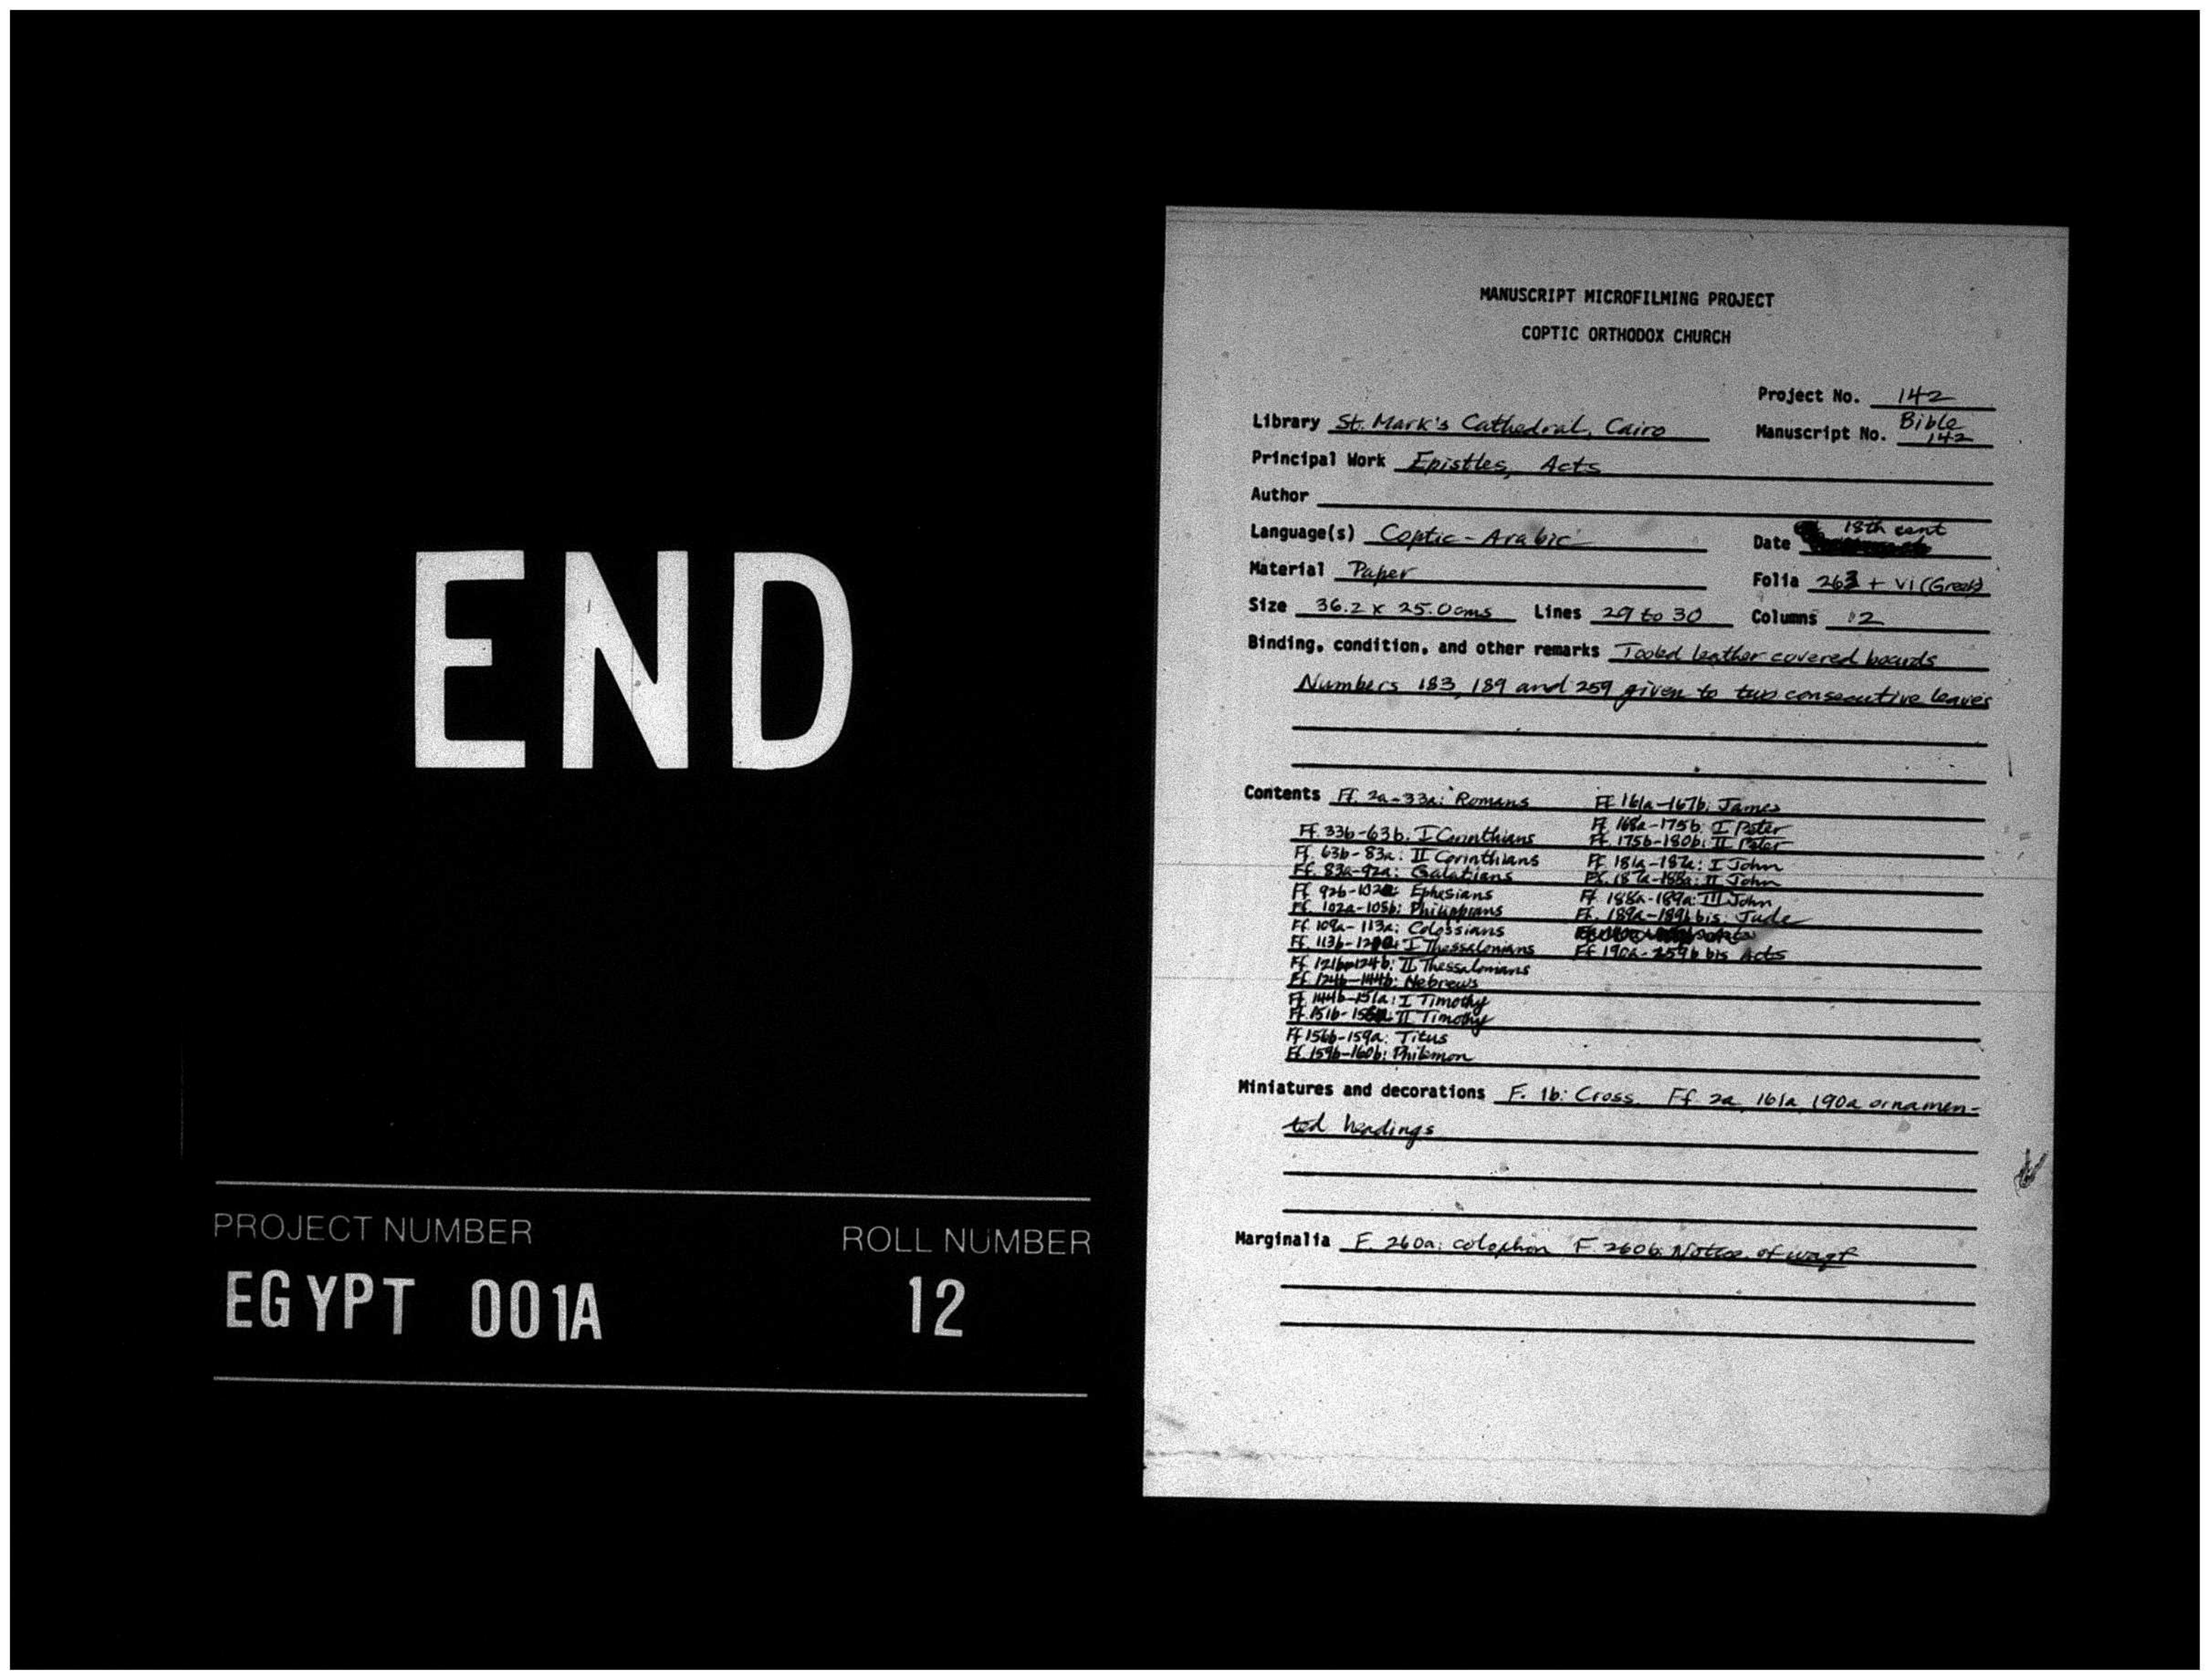 END
PROJECT NUMBER ROLL NUMBER
EGYPT 001A 12
MANUSCRIPT MICROFILMING PROJECT
COPTIC ORTHODOX CHURCH
Project No. 142
Library St. Mark's Cathedral, Cairo Manuscript No. Bible 142
Principal Work Epistles, Acts
Author
Language(s) Coptic-Arabic Date 18th cent
Material Paper Folia 263 + VI (Greek)
Size 36.2 x 25.0cms Lines 29 to 30 Columns 2
Binding, condition, and other remarks Tooled leather covered boards
Numbers 183, 189 and 259 given to two consecutive leaves
Contents Ff. 2a-33a: Romans
Ff. 33b-63b: I Corinthians
Ff. 63b-83a: II Corinthians
Ff. 83a-92a: Galatians
Ff 92b- Ephesians
Ff. 102a-105b: Philippians
Ff. 109a-113a: Colossians
Ff. 113b- I Thessalonians
Ff 121b-124b: II Thessalonians
Ff 124b-144b: Hebrews
Ff 144b-151a: I Timothy
Ff. 151b- II Timothy
Ff 156b-159a: Titus
Ff. 159b-160b: Philemon
Ff 161a-167b: James
Ff. 168a-175b: I Peter
Ff. 175b-180b: II Peter
Ff 181a-187a: I John
Ff. 187a-188a: II John
Ff 188a-189a: III John
Ff. 189a-189b bis. Jude
Ff 190a-259b bis Acts
Miniatures and decorations F. 1b: Cross. Ff 2a, 161a, 190a ornamen-
ted headings
Marginalia F. 260a: colophon F 260b: Notice of waqf